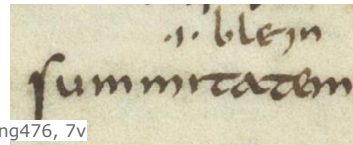 .i. blein
summitatem
ng476, 7v